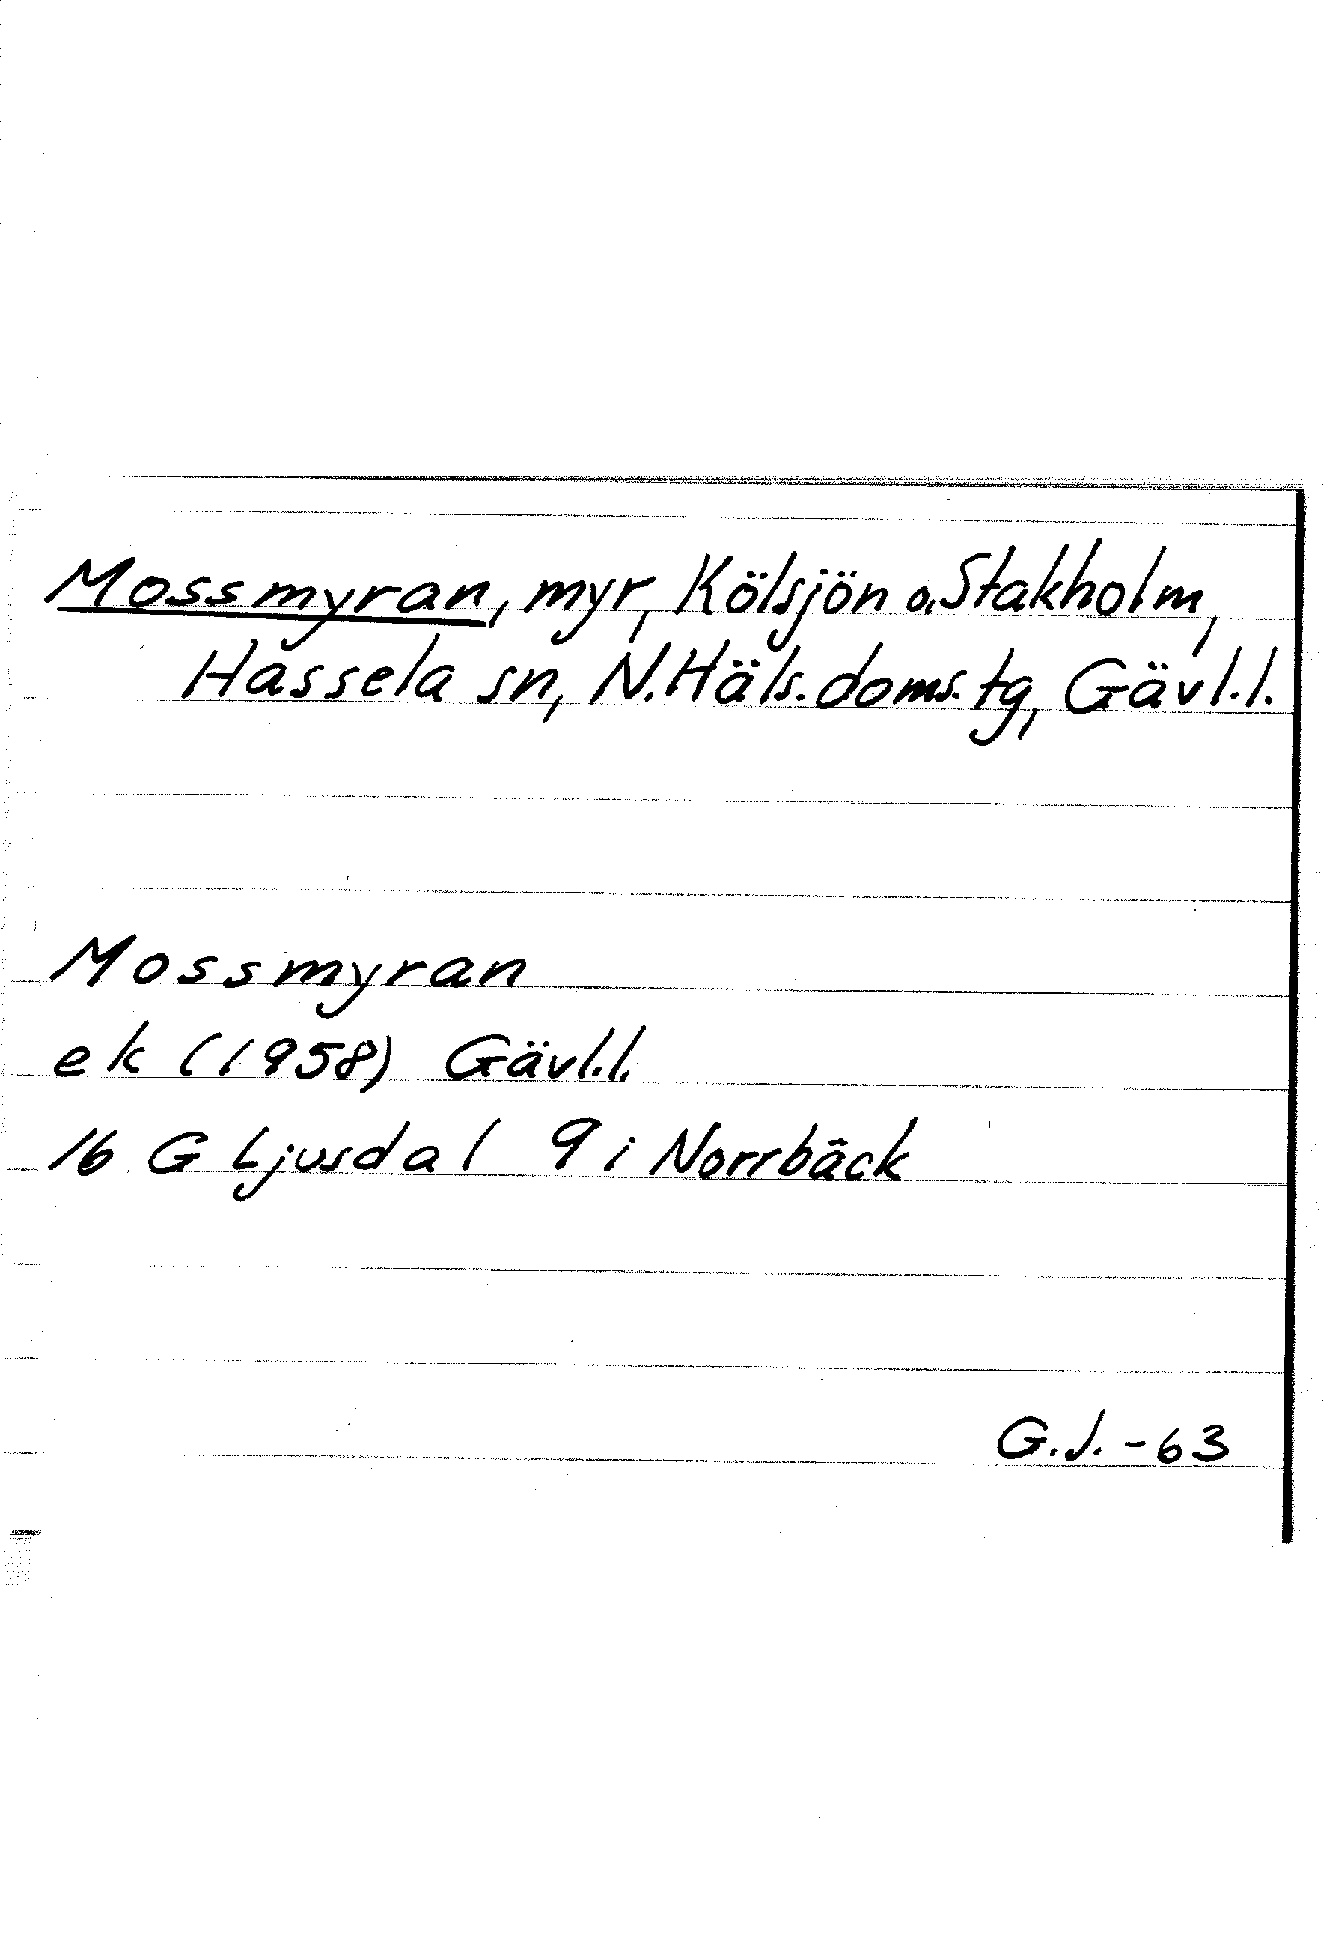 Mossmyran, myr, Kölsjön o. Stakholm,
Hassela sn, N. Häls. doms. tg, Gävl. l.
Mossmyran
ek (1958) Gävl. l.
16 G Ljusdal 9 i Norrbäck
G. J. -63